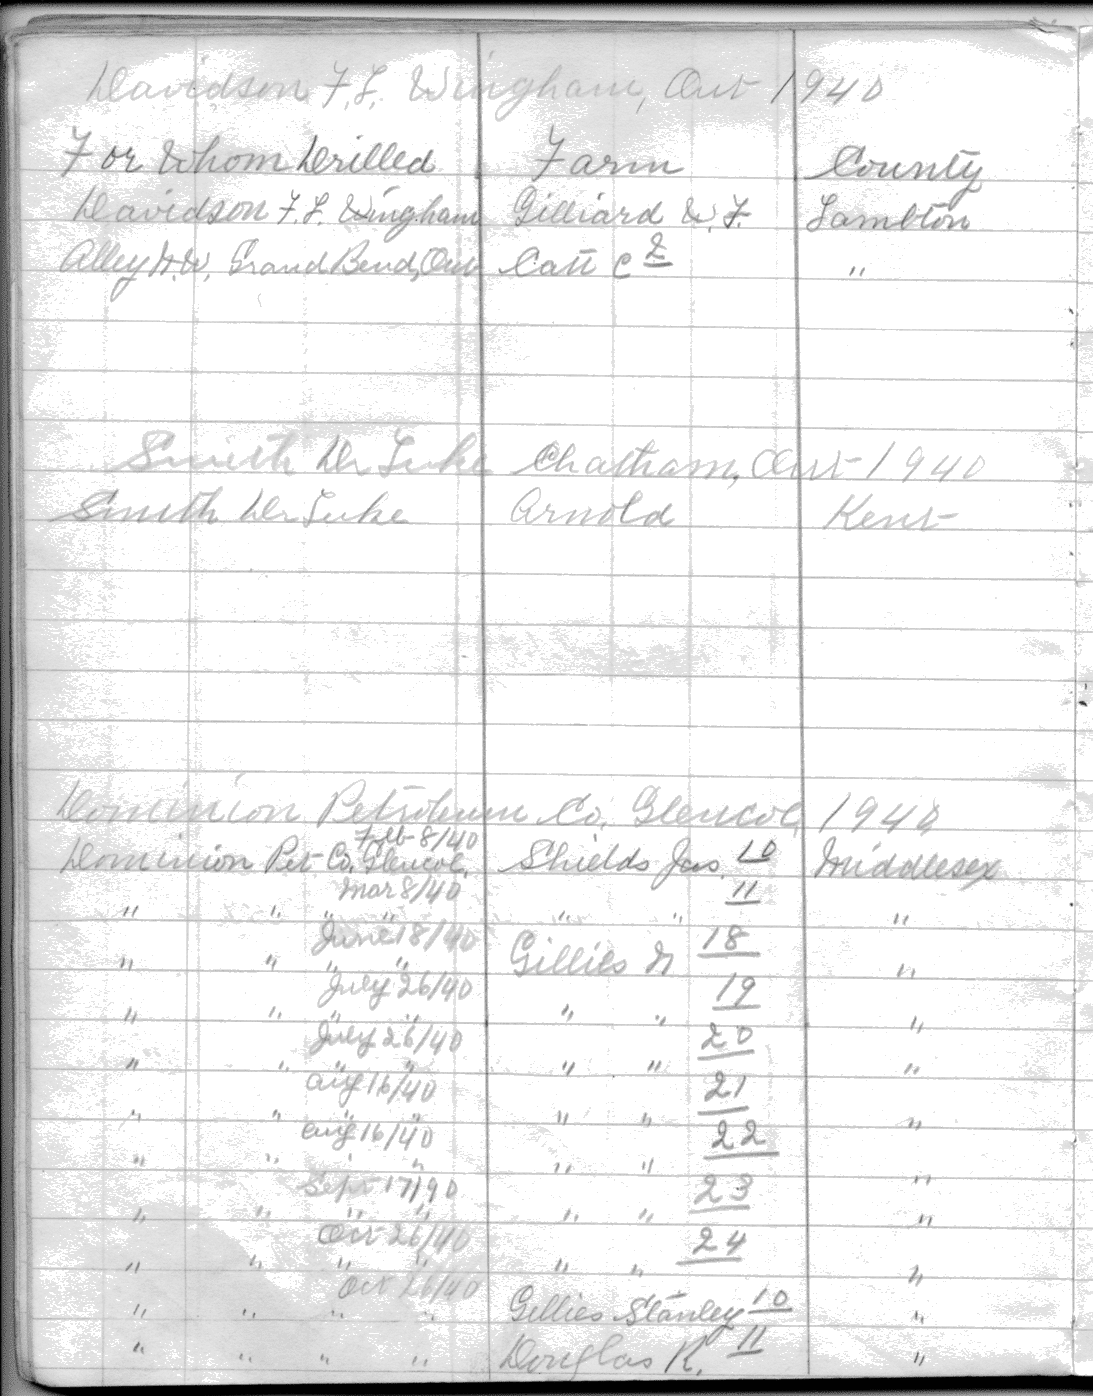 Davidson F.L. Wingham, Ont 1940
For Whom Drilled Farm County
Davidson F.L. Wingham Gilliard W.F. Lambton
Alley W. Grand Bend, Ont Catt C 2 "
Smith Dr Luke Chatham, Ont 1940
Smith Dr Luke Arnold Kent
Dominion Petroleum Co. Glencoe, 1940
Feb 8/40
Dominion Pet Co. Glencoe, Shields Jas. 10 Middlesex
Mar 8/40
" " " " " " 11 "
June 18/40
" " " " Gillies N 18 "
July 26/40
" " " " " " 19 "
July 26/40
" " " " " " 20 "
Aug 16/40
" " " " " " 21 "
Aug 16/40
" " " " " " 22 "
Sept 17/40
" " " " " " 23 "
Oct 26/40
" " " " " " 24 "
Oct 26/40
" " " " Gillies Stanley 10 "
" " " " Douglas R. 11 "